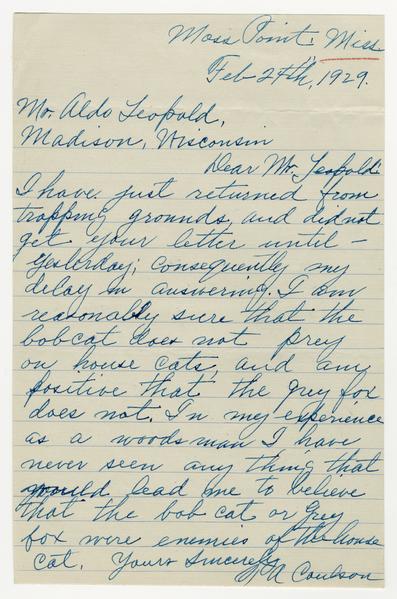 Moss Point, Miss
Feb 24th, 1929.
Mr. Aldo Leopold,
Madison, Wisconsin
Dear Mr. Leopold:
I have just returned from
trapping grounds, and did not
get your letter until –
yesterday; consequently my
delay in answering. I am
reasonably sure that the
bobcat does not prey
on house cats, and am
positive that the grey fox
does not. In my experience
as a woodsman I have
never seen any thing that
would lead me to believe
that the bob cat or grey
fox were enemies of the house
cat. Yours Sincerely,
Coulson